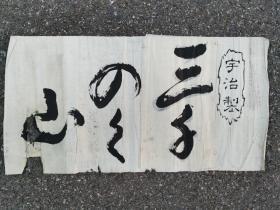 宇治製
三千
のく
山